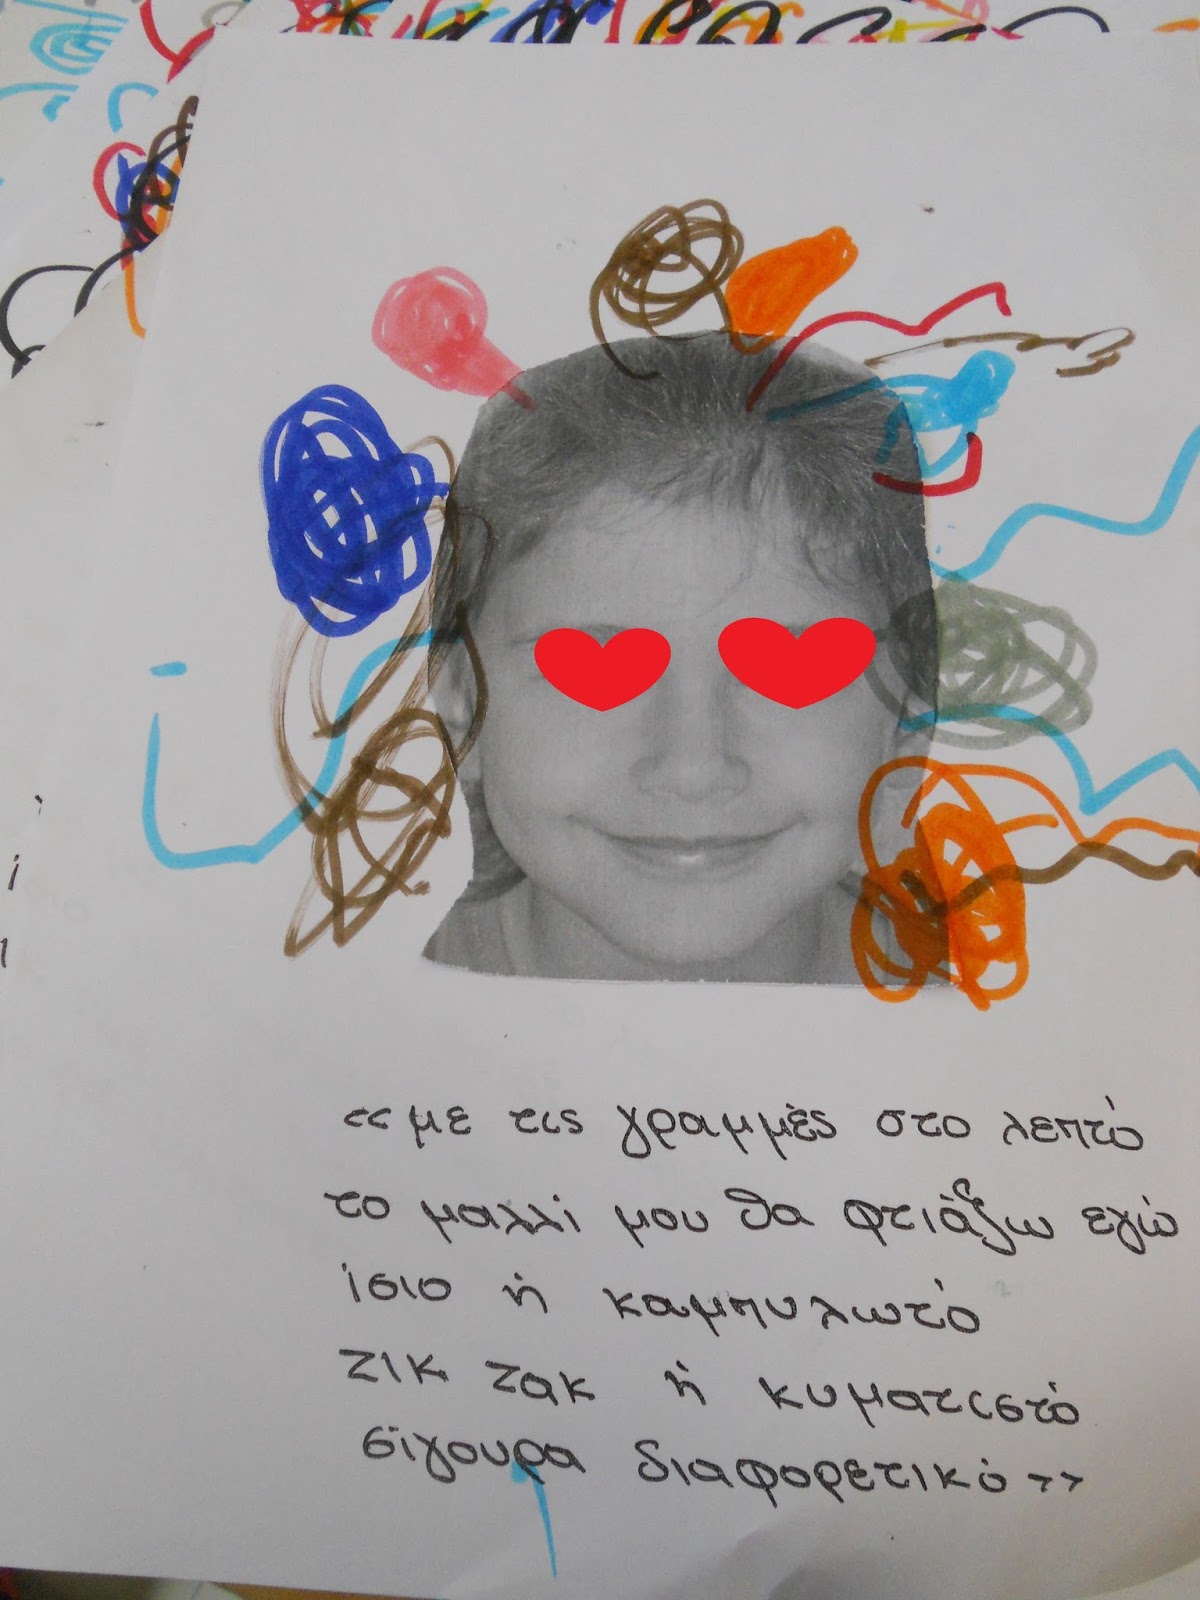 <<με τις γραμμές στο λεπτό
το μαλλί μου θα φτιάξω εγώ
ίσιο ή καμπυλωτό
ζικ ζακ ή κυματιστό
σίγουρα διαφορετικό>>